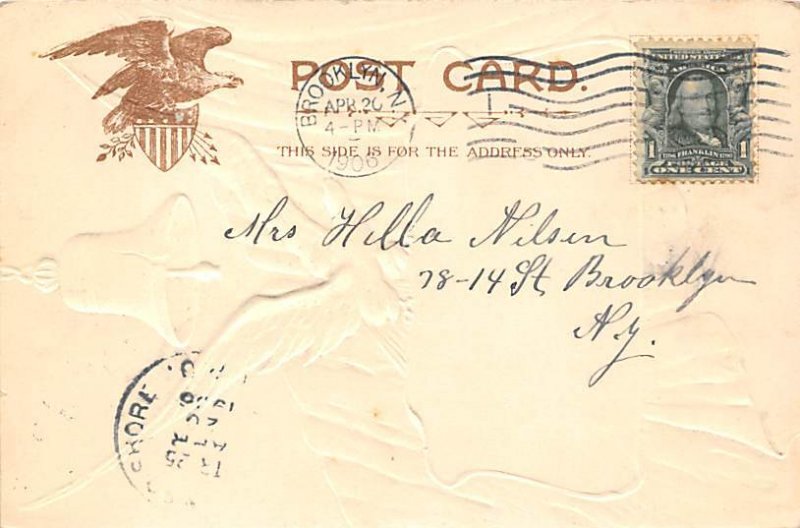 POST CARD.
BROOKLYN, N.
APR 20
4-PM
1906
THIS SIDE IS FOR THE ADDRESS ONLY.
UNITED STATES
OF AMERICA
1 FRANKLIN 1
POSTAGE
ONE CENT
Mrs Hilla Nilsen
78-14 St, Brooklyn
N.Y.